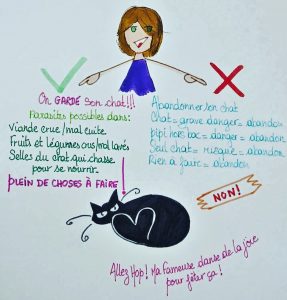 On GARDE son chat!!!
Parasites possibles dans:
Viande crue/mal cuite
Fruits et légumes crus/mal lavés
Selles du chat qui chasse
pour se nourrir.
PLEIN DE CHOSES À FAIRE!
Abandonner son chat
Chat = grave danger = abandon
pipi hors bac = danger = abandon
Seul chat = risque = abandon
Rien à faire = abandon
NON!
Allez Hop! Ma fameuse danse de la joie
pour fêter ça!